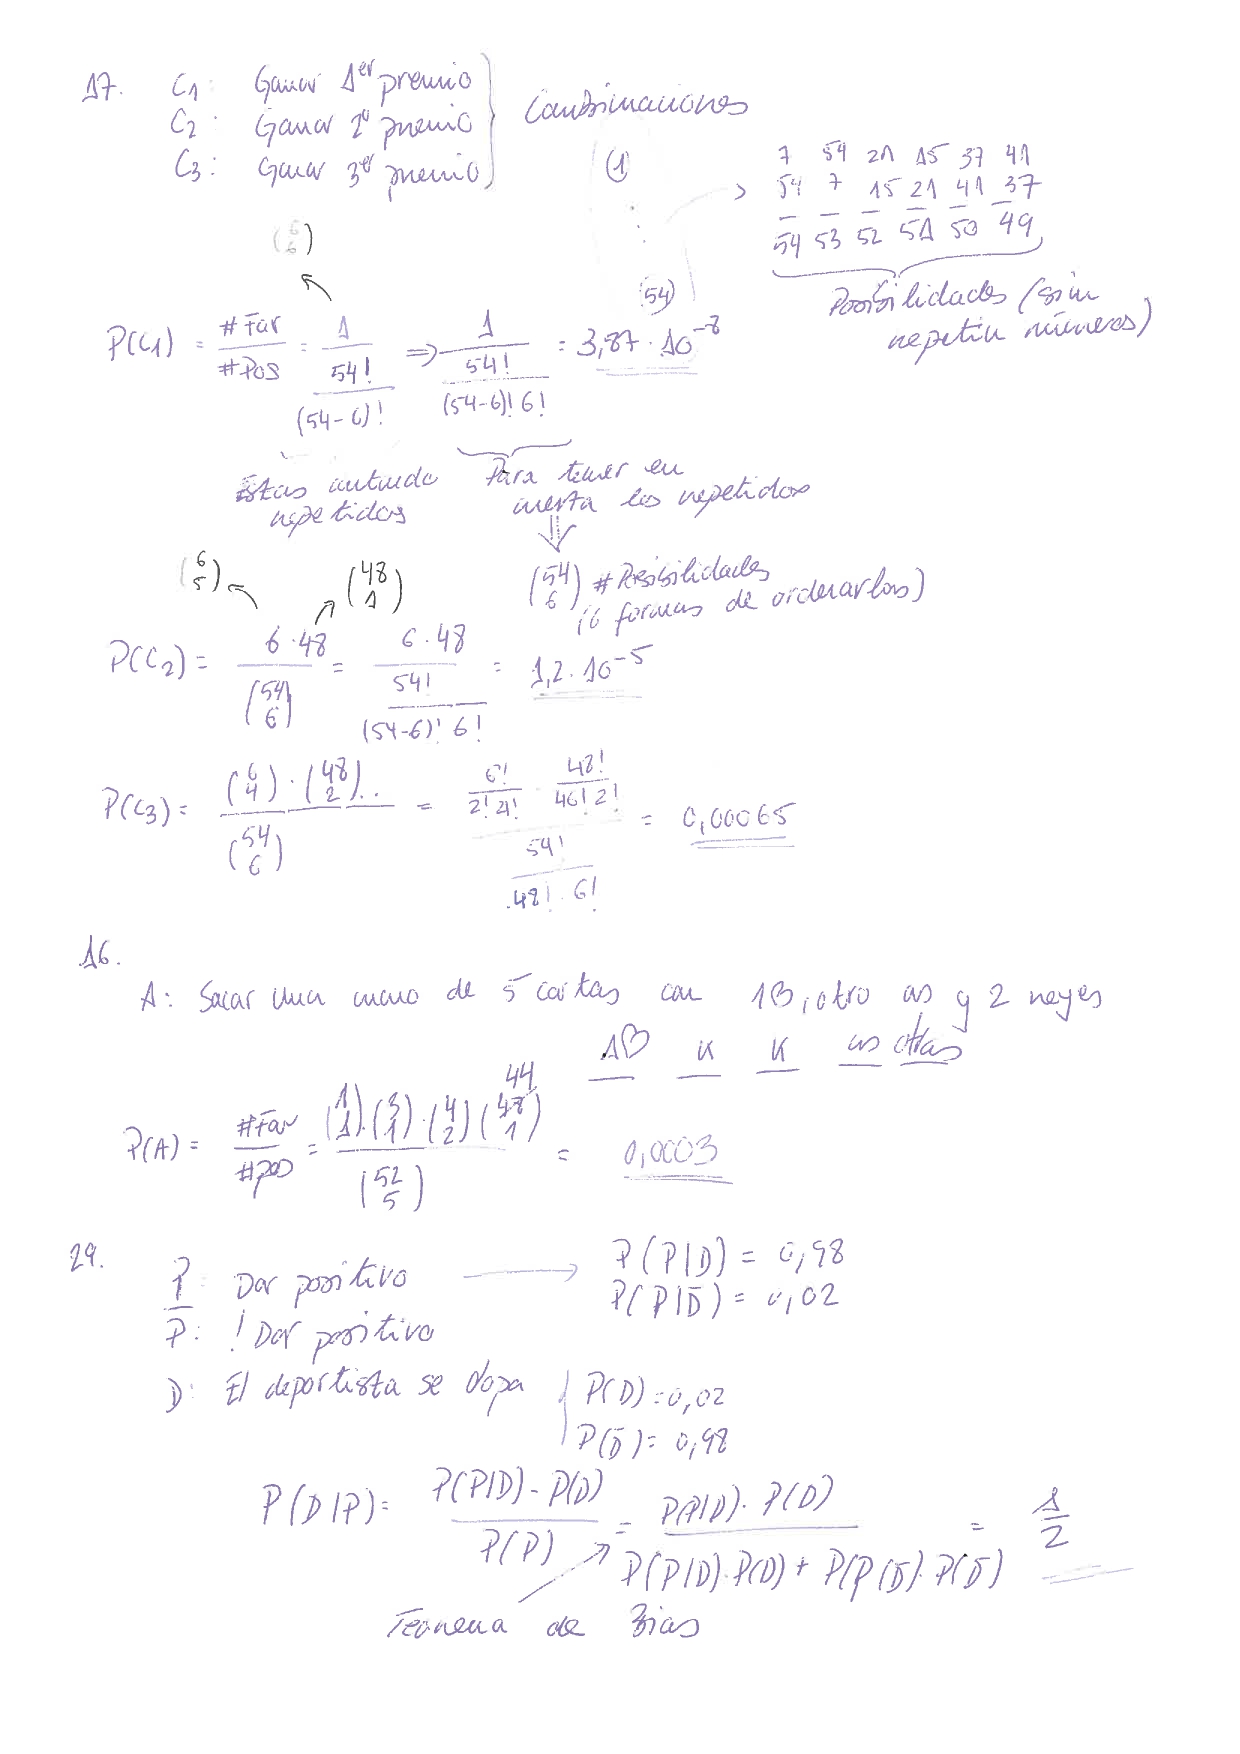 17. C1: Ganar 1er premio
C2: Ganar 2º premio
C3: Ganar 3er premio
Combinaciones
(1)
(54)
7 54 21 15 37 41
54 7 15 21 41 37
54 53 52 51 50 49
Posibilidades (sin
repetir números)
(6 6)
P(C1) = #Fav / #Pos = 1 / (54! / (54-6)!) ⇒ 1 / (54! / (54-6)! 6!) = 3,87 · 10^-8
Estas contando
repetidos
Para tener en
cuenta los repetidos
(54 6) # Posibilidades
(6 formas de ordenarlas)
(6 5) (48 1)
P(C2) = 6·48 / (54 6) = 6·48 / (54! / (54-6)! 6!) = 1,2 · 10^-5
P(C3) = (6 4)·(48 2) / (54 6) = (6! / 2! 4! · 48! / 46! 2!) / (54! / 48! · 6!) = 0,00065
16.
A: Sacar una mano de 5 cartas con 1B, otro as y 2 reyes
1♡ K K as otras
P(A) = #Fav / #pos = (1 1)·(3 1)·(4 2)(44 1) / (52 5) = 0,0003
29.
P: Dar positivo → P(P|D) = 0,98
P(P|D̄) = 0,02
P̄: ! Dar positivo
D: El deportista se dopa
P(D) = 0,02
P(D̄) = 0,98
P(D|P) = P(P|D) - P(D) / P(P) = P(P|D) · P(D) / P(P|D)·P(D) + P(P|D̄)·P(D̄) = 1/2
Teorema de Bias